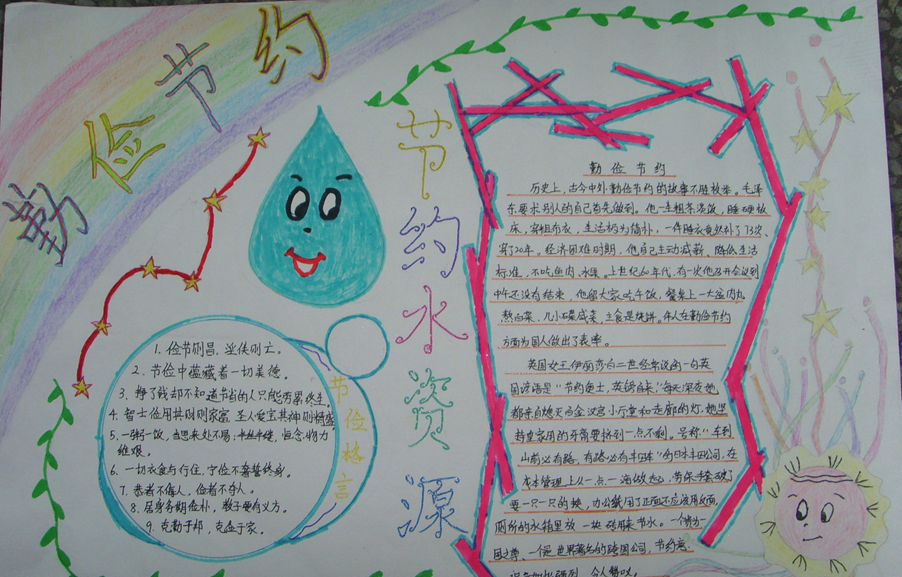 勤俭节约
节约水资源
1. 俭节则昌，淫佚则亡。
2. 节俭中蕴藏着一切美德。
3. 挣了钱却不知道节省的人只能劳累终生。
4. 智士俭用其财则家富 圣人爱宝其神则精盛
5. 一粥一饭，当思来处不易；半丝半缕，恒念物力
维艰。
6. 一切衣食与行住，宁俭不奢誓终身。
7. 恭者不侮人，俭者不夺人。
8. 居身务期俭朴，教子要有义方。
9. 克勤于邦，克俭于家。
节俭格言
勤俭节约
历史上，古今中外勤俭节约的故事不胜枚举。毛泽
东要求别人的自己首先做到。他一生粗茶淡饭，睡硬板
床，穿粗布衣，生活极为简朴，一件睡衣竟然补了73次、
穿了20年。经济困难时期，他自己主动减薪、降低生活
标准，不吃鱼肉、水果。上世纪60年代，有一次他召开会议到
中午还没有结束，他留大家吃午饭，餐桌上一大盆肉丸
熬白菜、几小碟咸菜，主食是烧饼。个人在勤俭节约
方面为国人做出了表率。
英国女王伊丽莎白二世经常说的一句英
国谚语是“节约便士，英镑自来”每天深夜她
都亲自熄灭白金汉宫小厅堂和走廊的灯，她坚
持皇家用的牙膏要挤到一点不剩。号称“车到
山前必有路，有路必有丰田车”的日本丰田公司，在
成本管理上从一点一滴做起，劳保手套破了
要一只一只的换，办公纸用了正面还应该用反面，
厕所的水箱里放一块砖用来节水。一个贵为一
国之尊、一个是世界著名的跨国公司，节约意
令人赞叹。